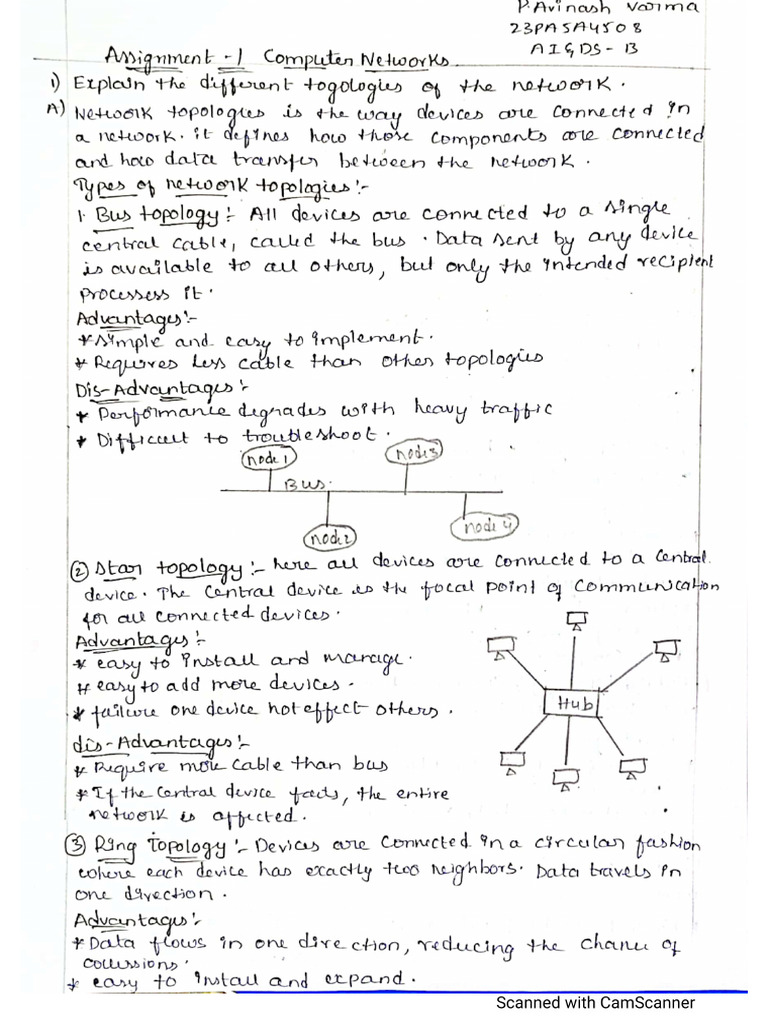 P. Avinash Varma
23PA5A4508
AI&DS-B
Assignment-1 Computer Networks.
1) Explain the different togologies of the network.
A) Network topologies is the way devices are connected in
a network. it defines how those components are connected
and how data transfer between the network.
Types of network topologies:-
1. Bus topology:- All devices are connected to a single
central cable, called the bus. Data sent by any device
is available to all others, but only the intended recipient
processess it.
Advantages:-
* Simple and easy to implement.
* Requires Less cable than other topologies
Dis-Advantages:-
* Performance degrades with heavy traffic
* Difficult to troubleshoot.
node 1
node3
Bus.
node2
node 4
② Star topology:- here all devices are connected to a central
device. The central device is the focal point of communication
for all connected devices.
Advantages:-
* easy to install and manage.
* easy to add more devices.
* failure one device not effect others.
Hub
dis-Advantages:-
* Require more cable than bus
* If the central device fails, the entire
network is affected.
③ Ring Topology:- Devices are connected in a circular fashion
where each device has exactly two neighbors. Data travels in
one direction.
Advantages:-
* Data flows in one direction, reducing the chance of
collissions.
* easy to install and expand.
Scanned with CamScanner